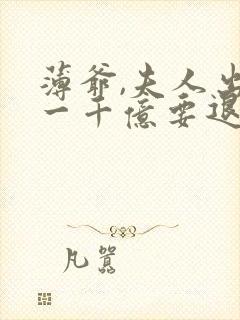 薄爷,夫人出
一千億要退
凡嚣